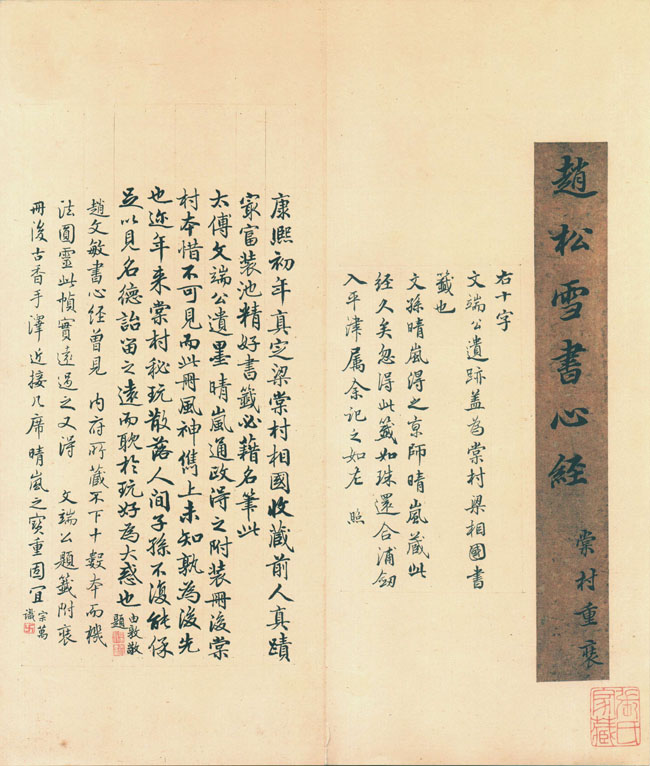 趙松雪書心經
棠村重裝
張氏家藏
右十字
文端公遺跡蓋為棠村梁相國書
籤也
文孫晴嵐得之京師晴嵐藏此
經久矣忽得此籤如珠還合浦劒
入平津屬余記之如左 照
康熙初年真定梁棠村相國收藏前人真蹟
冣富装池精好書籤必藉名筆此
太傅文端公遺墨晴嵐通政得之附装冊後棠
村本惜不可見而此冊風神雋上未知孰為後先
也迩年来棠村秘玩散落人间子孫不復能保
足以見名德詒留之遠而耽於玩好為大惑也
由敦敬
題
趙文敏書心经曾見 内府所藏不下十數本而機
法圓靈此幀實遠過之又得 文端公題籤附裝
冊後古香手澤近接几席晴嵐之寶重固宜
宗萬
識